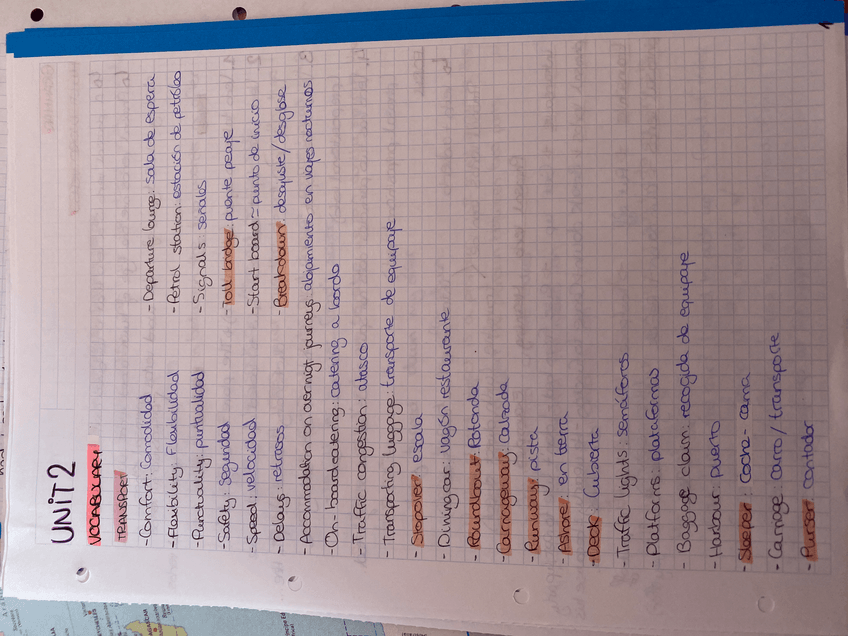 UNIT 2
VOCABULARY
TRANSPORT
- Comfort: Comodidad
- Flexibility: Flexibilidad
- Punctuality: puntualidad
- Safety: seguridad
- Speed: velocidad
- Delays: retrasos
- Departure lounge: sala de espera
- Petrol station: estación de petróleo
- Signals: señales
- Toll bridge: puente peaje
- Start board = punto de inicio
- Breakdown: desajuste / desglose
- Accommodation on overnigt journeys: alojamiento en viajes nocturnos
- On-board catering: catering a bordo
- Traffic congestion: atasco
- Transporting luggage: transporte de equipaje
- Stopover: escala
- Dining car: vagón restaurante
- Roundabout: Rotonda
- Carriageway: Calzada
- Runway: pista
- Ashore: en tierra
- Deck: Cubierta
- Traffic lights: semáforos
- Platforms: plataformas
- Baggage claim: recogida de equipaje
- Harbour: puerto
- Sleeper: Coche-cama
- Carriage: carro / transporte
- Purser: contador
1